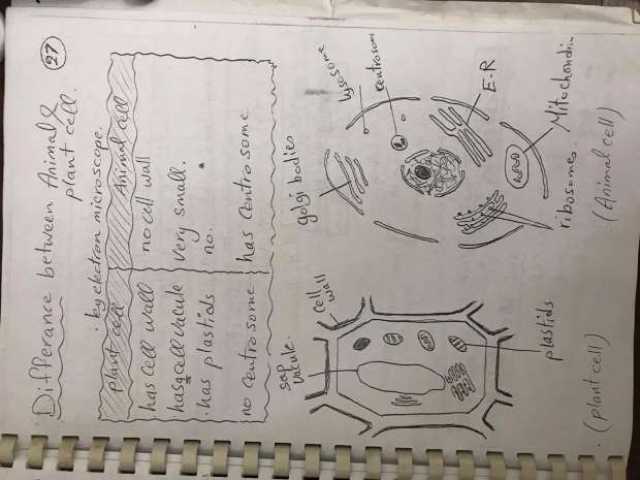 27
Differance between Animal &
plant cell.
by electron microscope.
plant cell Animal cell
has cell wall no cell wall
has a cell vacule very small.
has plastids no.
no centrosome has centrosome
golgi bodies
lysosome
centrosom
E-R
Mitochondri
ribosomes.
(Animal cell)
sap
vacule.
cell
wall
plastids
(plant cell)